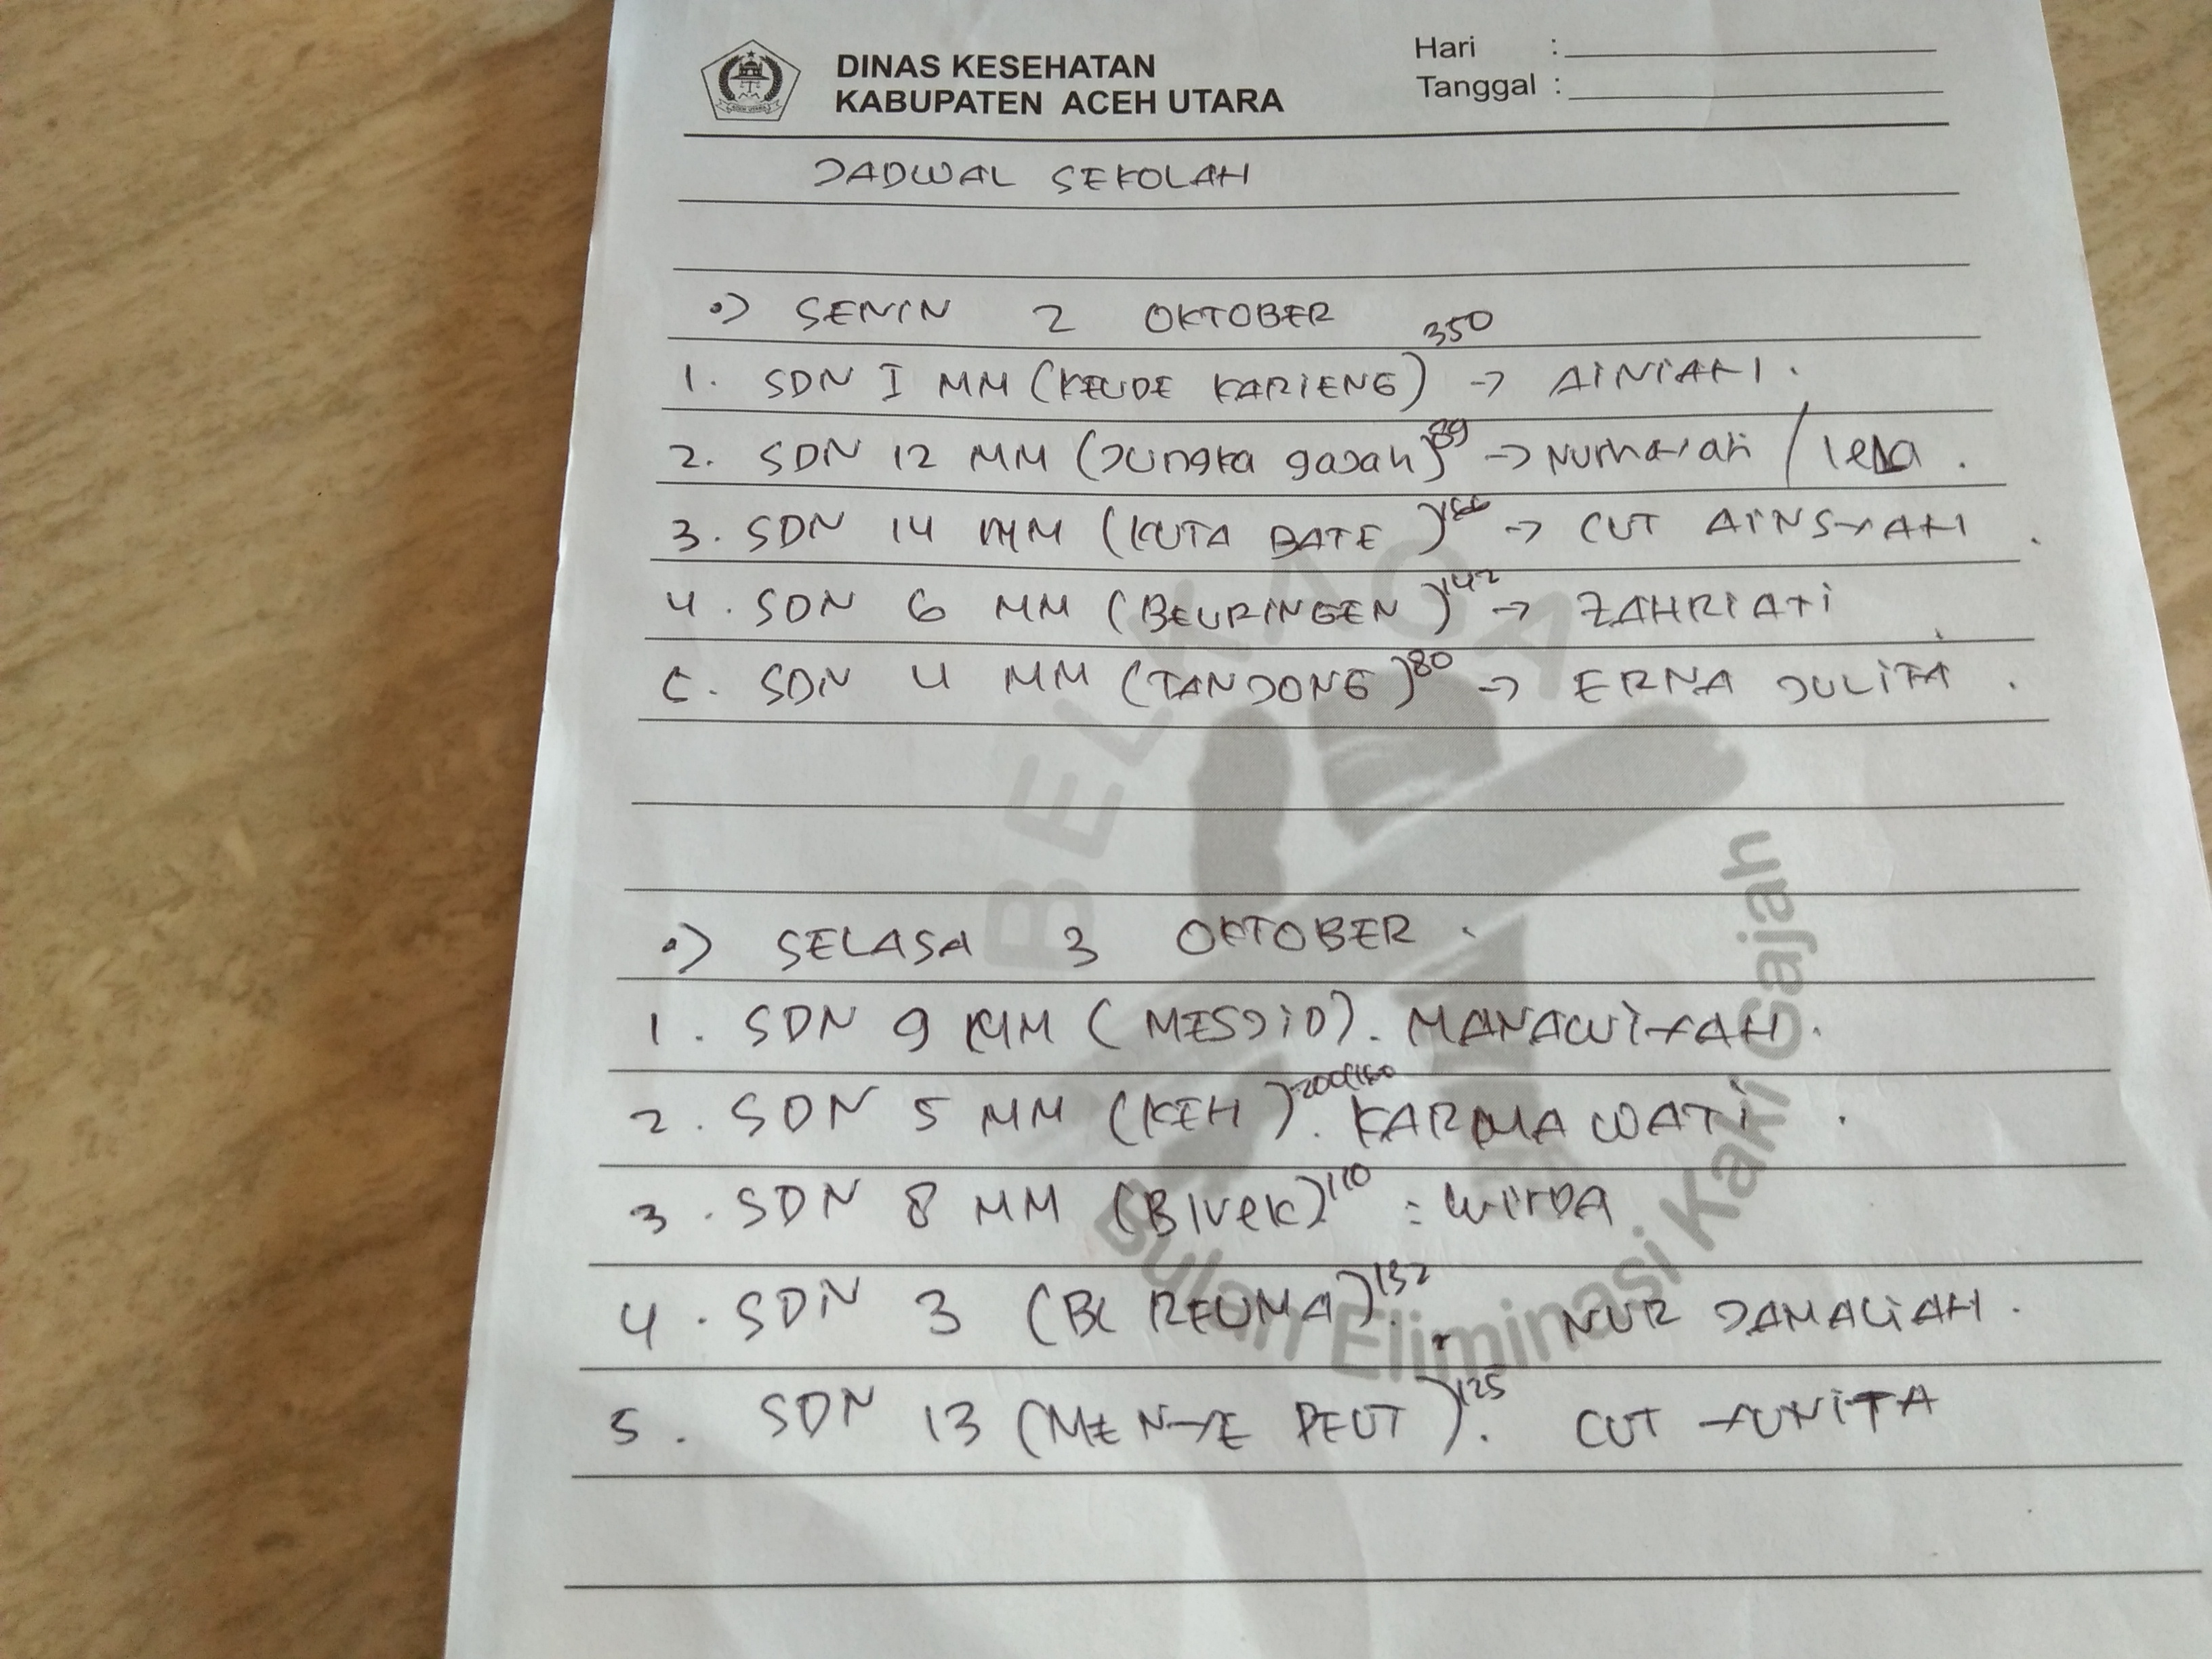 DINAS KESEHATAN
KABUPATEN ACEH UTARA
Hari :
Tanggal :
JADWAL SEKOLAH
•) SENIN 2 OKTOBER
1. SDN I MM (KEUDE KARIENG) 350 → AINIAH.
2. SDN 12 MM (Jungka gajah) 89 → Nurhaiah / lela.
3. SDN 14 MM (KUTA BATE) → CUT AINSYAH.
4. SDN 6 MM (BEURINGEN) 142 → ZAHRIATI
5. SDN 4 MM (TANJONG) 80 → ERNA JULITA.
•) SELASA 3 OKTOBER.
1. SDN 9 MM (MESJID). MANAWIYAH.
2. SDN 5 MM (KEH). KARMAWATI.
3. SDN 8 MM (Blvek) 110 : WIrDA
4. SDN 3 (BL REUMA) 132. NUR JAMALIAH.
5. SDN 13 (MENYE PEUT) 125. CUT YUNITA
BELKAGA
Bulan Eliminasi Kaki Gajah